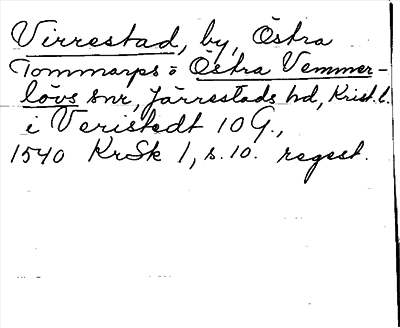 Virrestad, by, Östra
Tommarps o Östra Vemmer-
lövs snr, Järrestads hd, Krist. l.
i Veristedt 10 G.,
1540 KrSk 1, s. 10. regest.